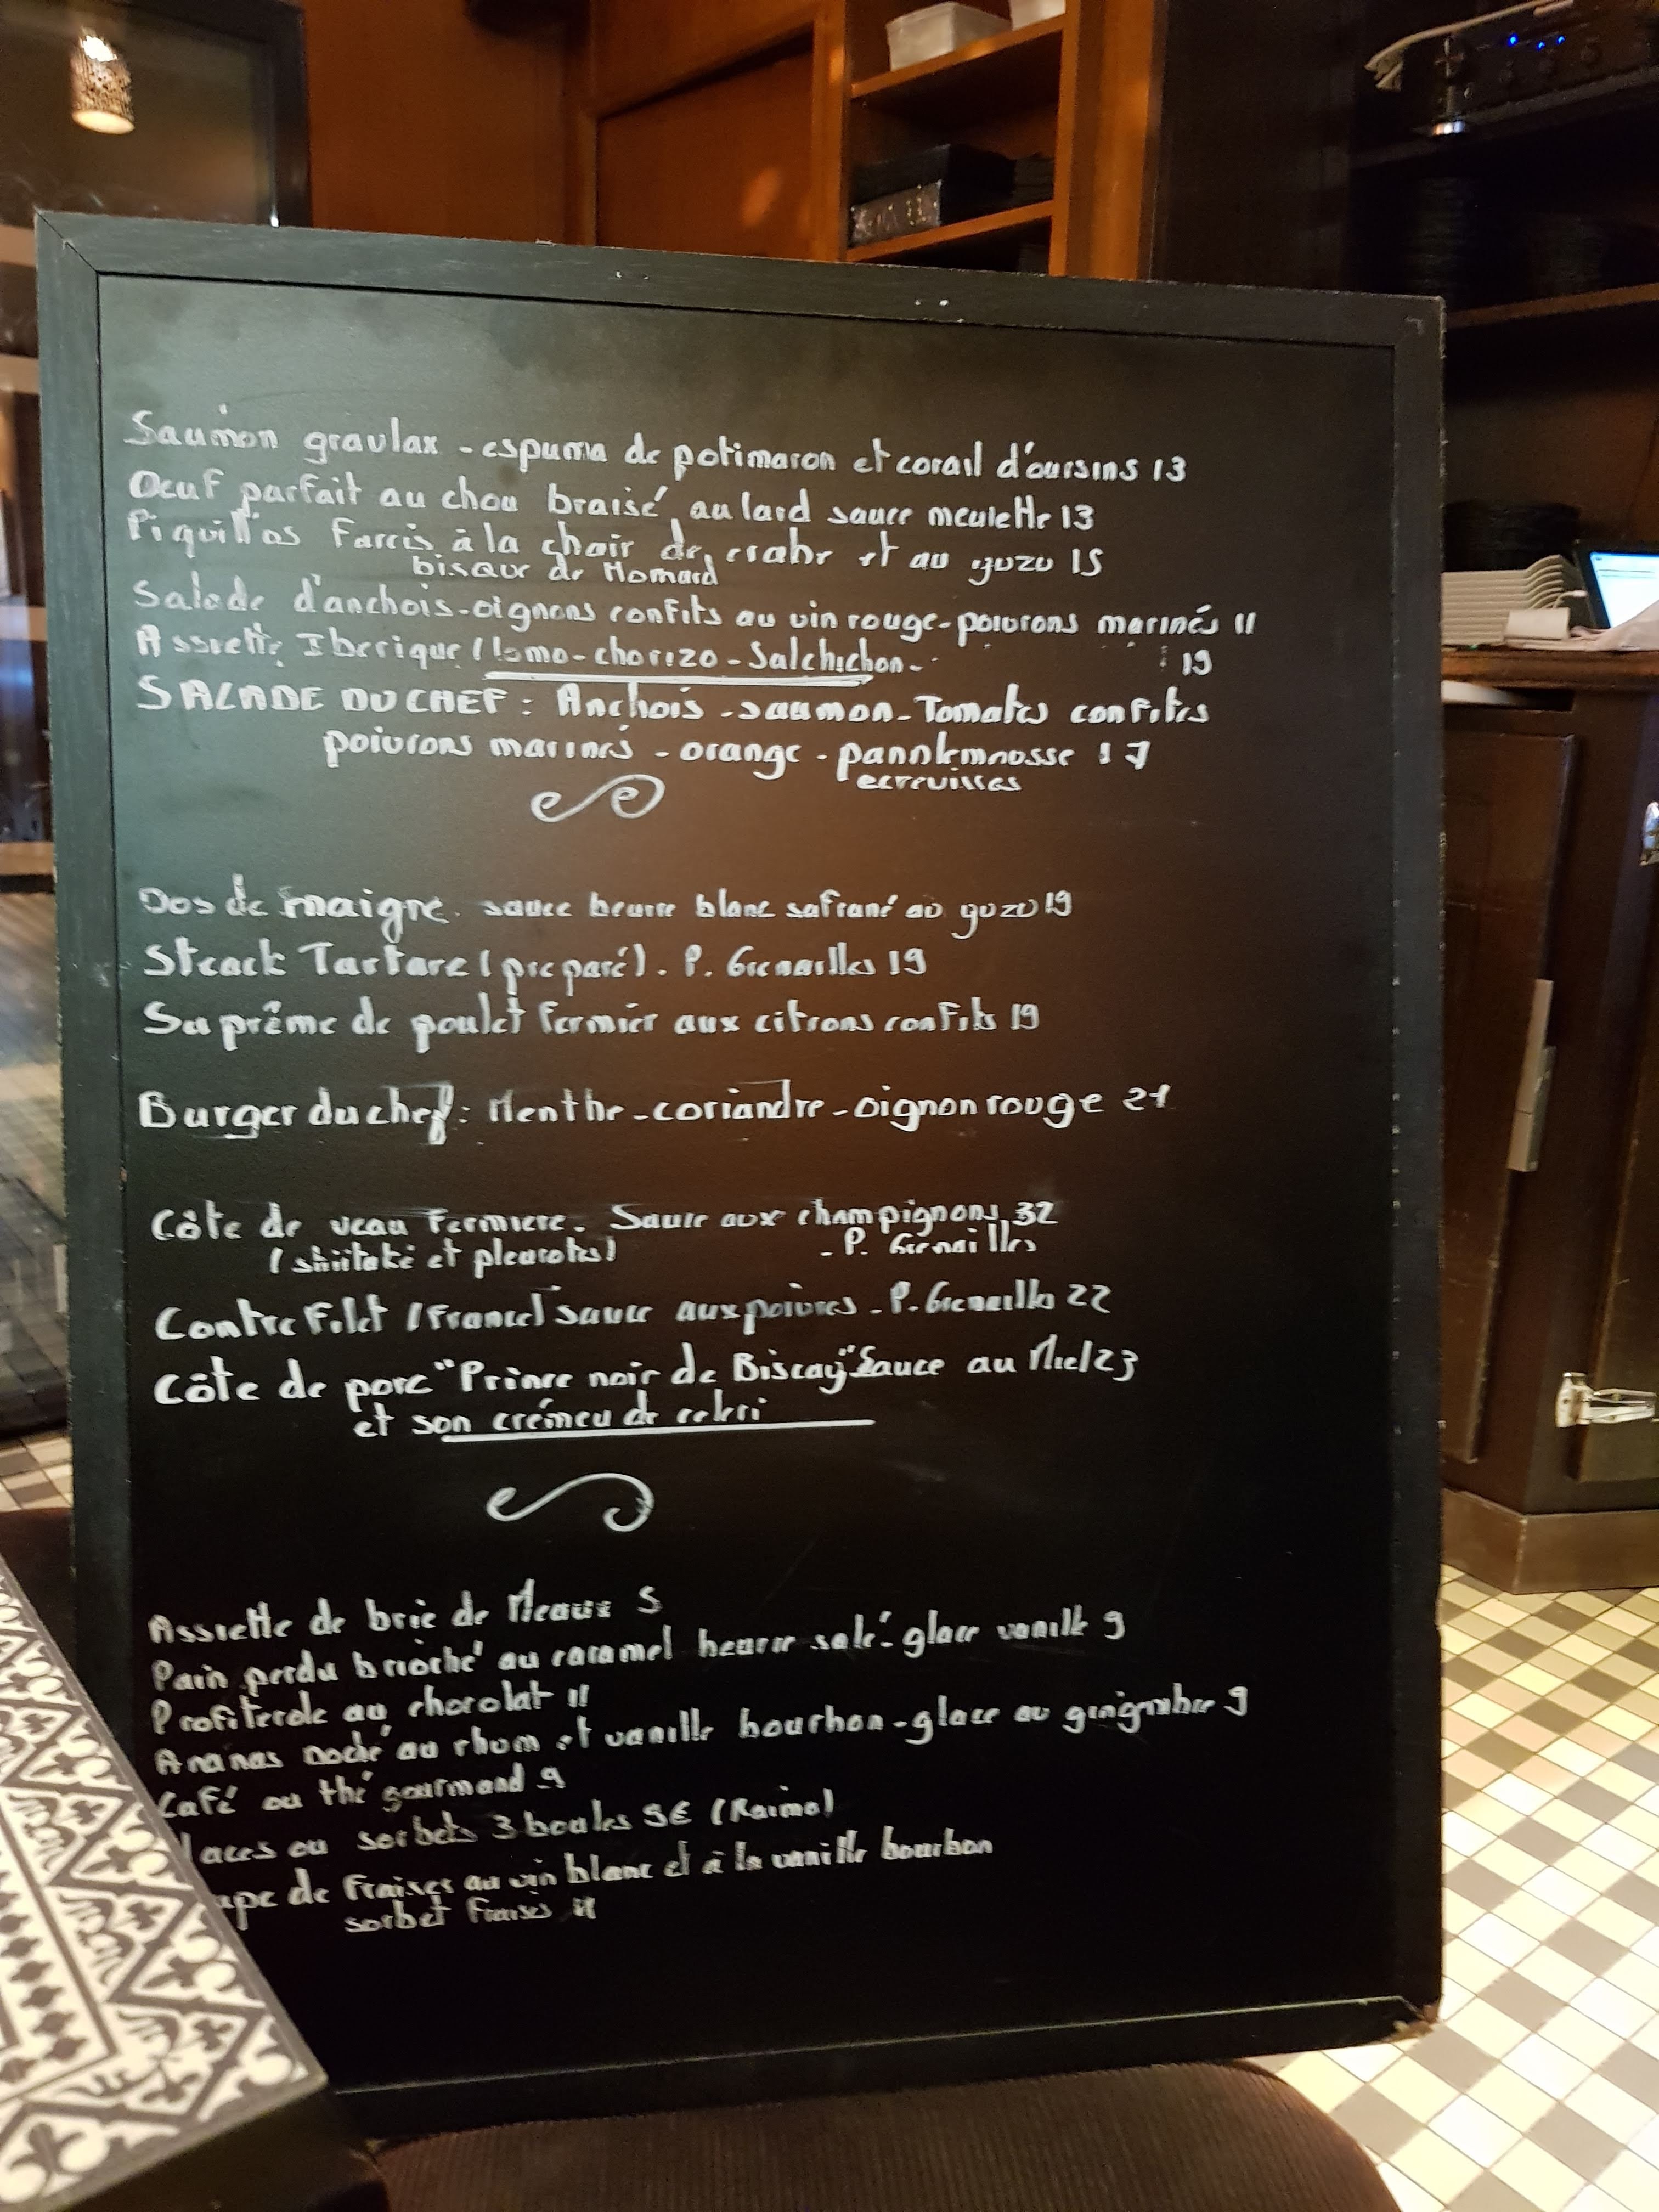 Saumon gravlax - espuma de potimaron et corail d'oursins 13
Oeuf parfait au chou braisé au lard sauce meulette 13
Piquillos Farcis à la chair de crabe et au yuzu 15
bisque de Homard
Salade d'anchois - oignons confits au vin rouge - poivrons marinés 11
Assiette Iberique (lomo - chorizo - Salchichon - 19
SALADE DU CHEF : Anchois - saumon - Tomates confites
poivrons marinés - orange - pamplemousse 17
ecrevisses
Dos de maigre. sauce beurre blanc safrané au yuzu 19
Steack Tartare (preparé). P. Grenailles 19
Suprême de poulet fermier aux citrons confits 19
Burger du chef : Menthe - coriandre - oignon rouge 21
Côte de veau Fermiere. Sauce aux champignons 32
(shiitaké et pleurotes) - P. Grenailles
Contre Filet (France) sauce aux poivres - P. Grenailles 22
Côte de porc "Prince noir de Biscay" Sauce au Miel 23
et son crémeu de celeri
Assiette de brie de Meaux 5
Pain perdu brioché au caramel beurre salé - glace vanille 9
Profiterole au chocolat 11
Ananas au rhum et vanille bourbon - glace au gingembre 9
Café ou thé gourmand 9
laces ou sorbets 3 boules 9€ (Raimo)
upe de Fraises au vin blanc et à la vanille bourbon
sorbet Fraises 11